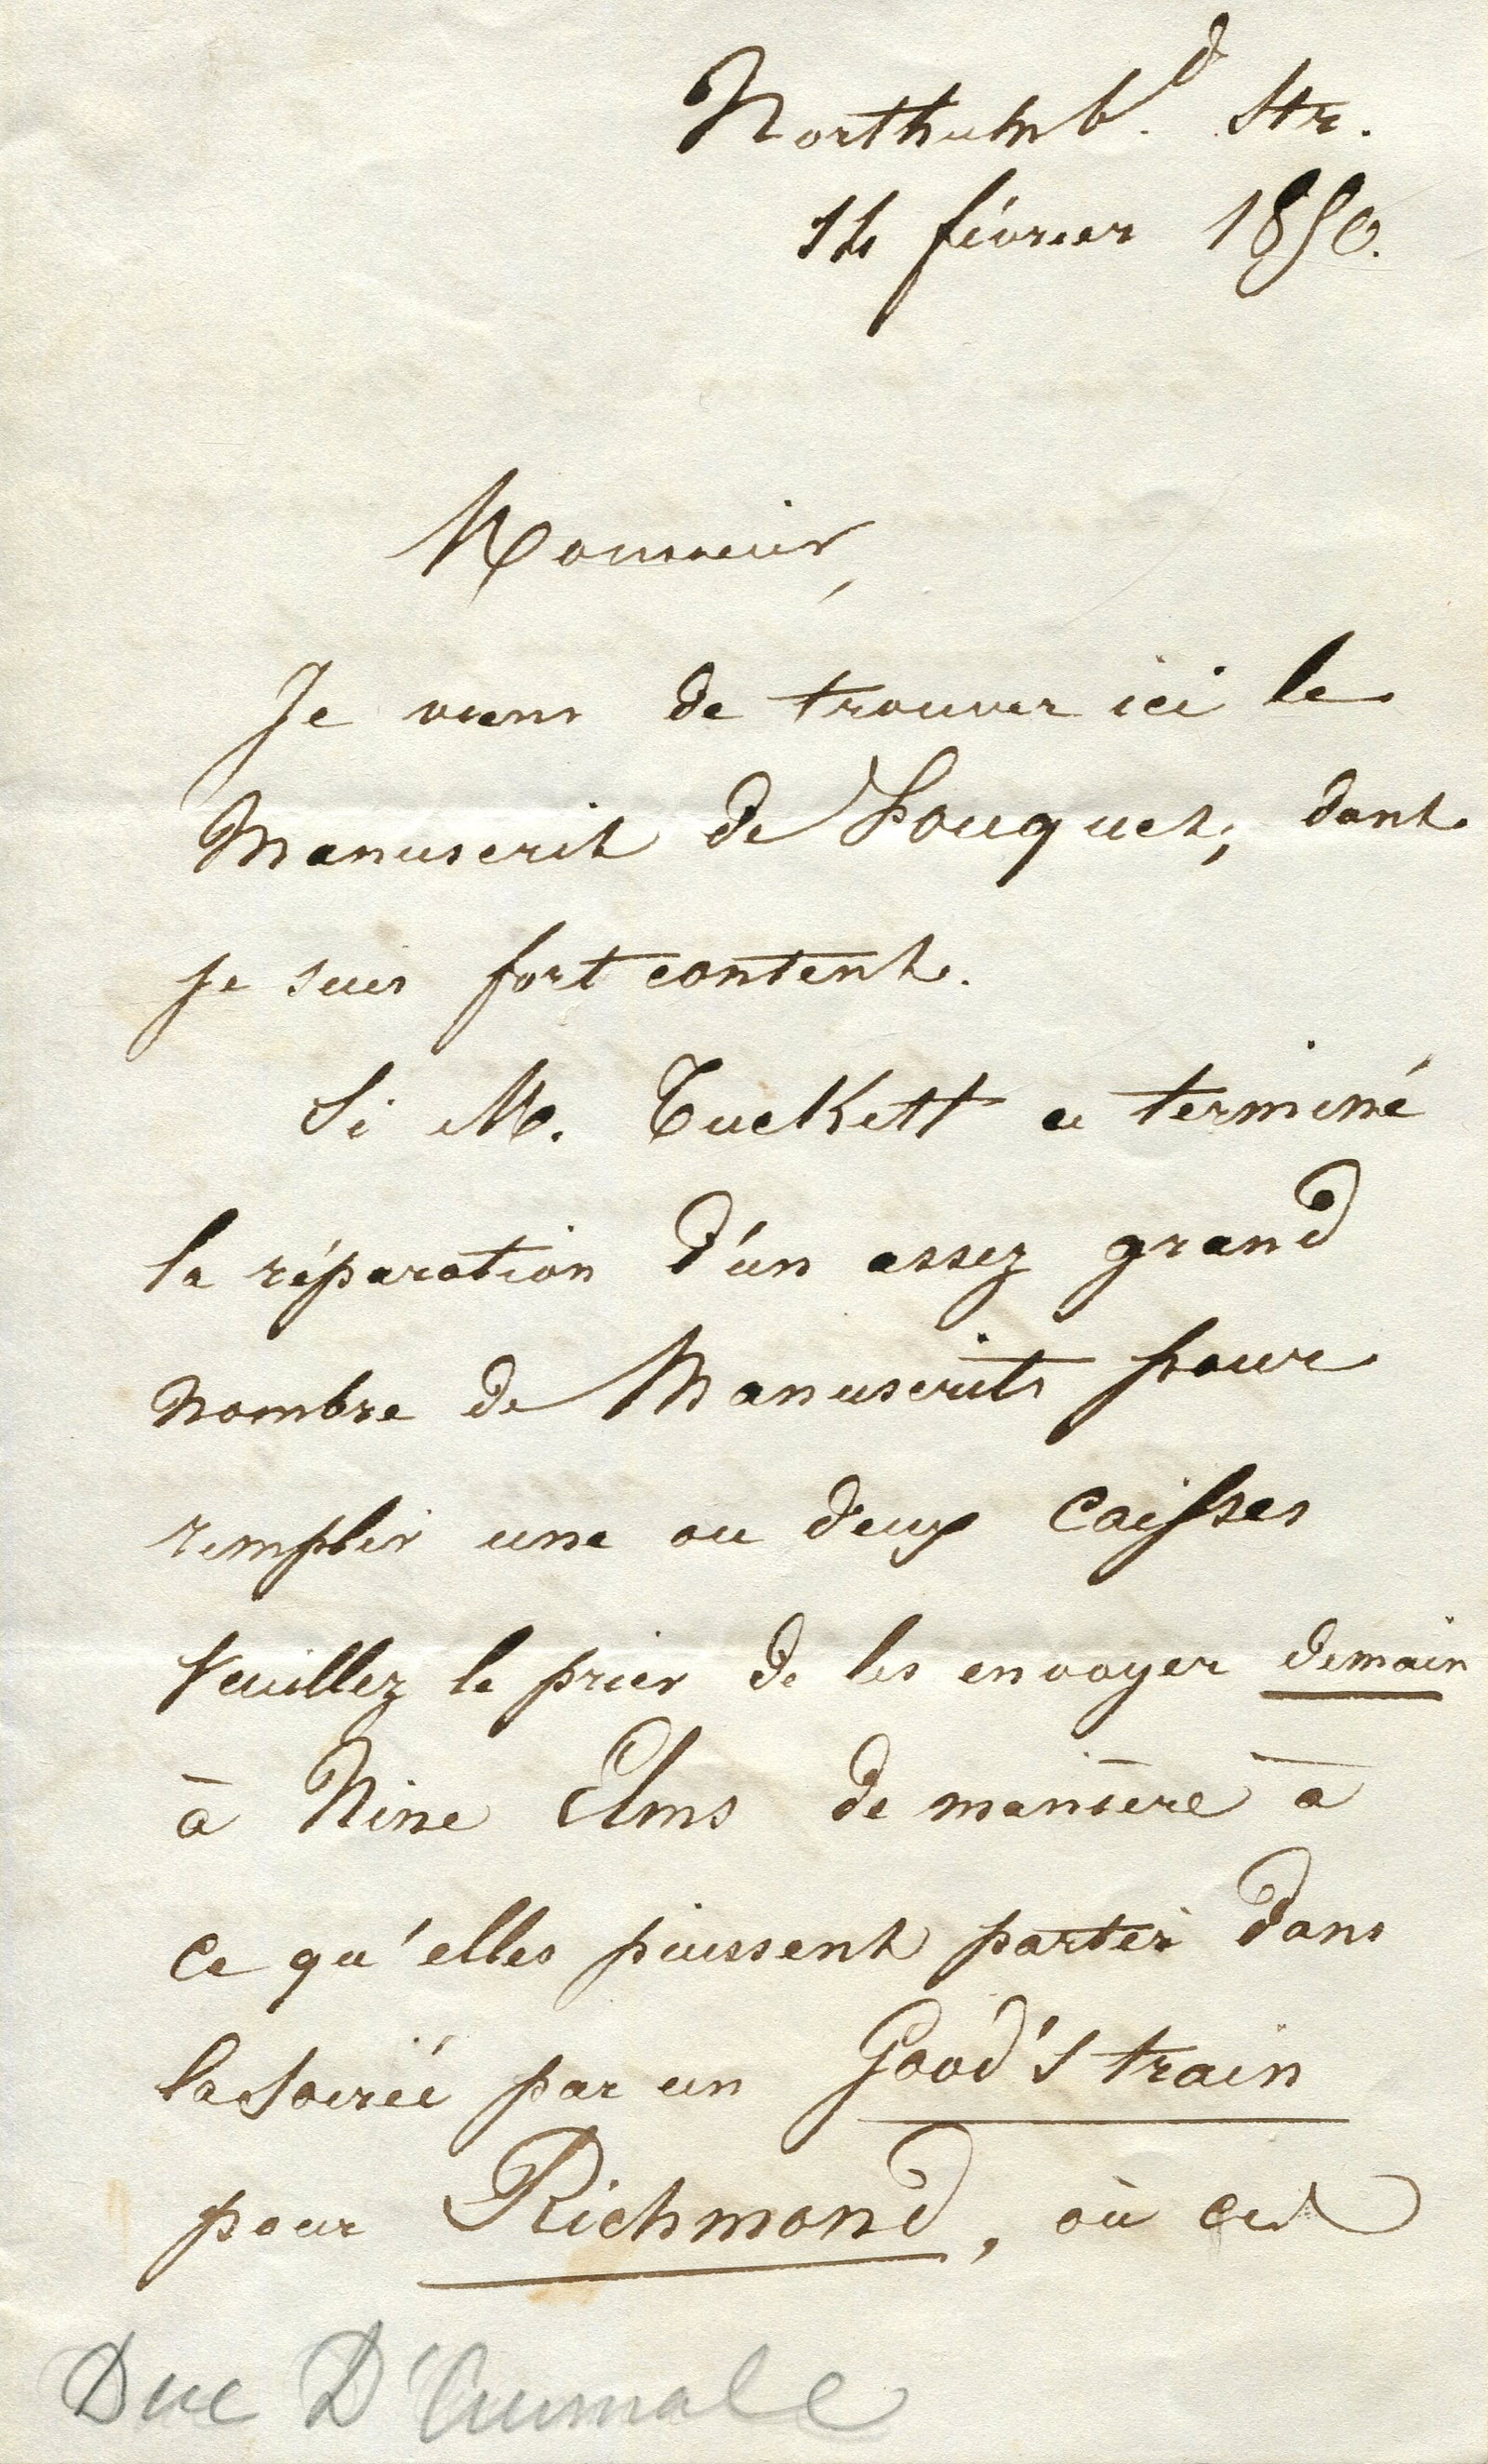 Northumb.d Str.
14 février 1850.
Monsieur,
Je viens de trouver ici le
Manuscrit de Fouquet, dont
je suis fort content.
Si M. Tuckett a terminé
la réparation d'un assez grand
nombre de Manuscrits pour
remplir une ou deux caisses
veuillez le prier de les envoyer demain
à Nine Elms de manière à
ce qu'elles puissent partir dans
la soirée par un Good's train
pour Richmond, où
Duc D'Aumale